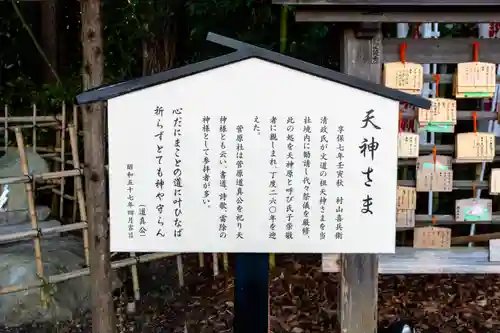 天神さま
享保七年壬寅秋　村山喜兵衛
清政氏が文道の祖天神さまを当
社境内に勧請し代々祭儀を厳修
此の処を天神原と呼び氏子崇敬
者に親しまれ、丁度二六〇年を迎
えた。
菅原社は菅原道真公を祀り天
神様とも云い、書道、詩歌、雷除の
神様として参拝者が多い。
心だにまことの道に叶ひなば
祈らずとても神や守らむ
（道真公）
昭和五十七年四月